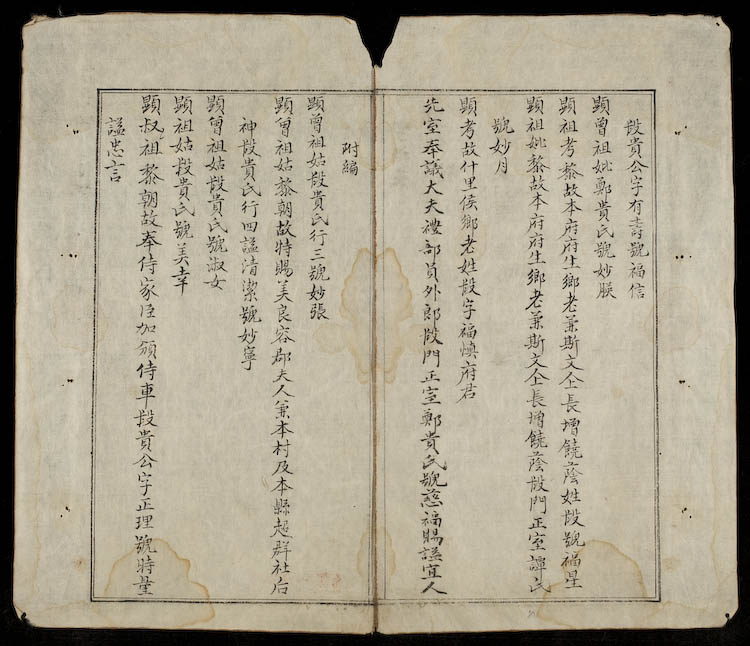 段貴公字有壽號福信
顯曾祖妣鄭貴氏號妙朕
顯祖考黎故本府府生鄉老兼斯文仝長增饒蔭姓段號福星
顯祖妣黎故本府府生鄉老兼斯文仝長增饒蔭段門正室譚氏
號妙月
顯考故什里侯鄉老姓段字福慎府君
先室奉議大夫禮部員外郎段門正室鄭貴氏號慈福賜謚宜人
附編
顯曾祖姑段貴氏行三號妙張
顯曾祖姑黎朝故特賜美良容郡夫人兼本村及本縣超群社后
神段貴氏行四謚清潔號妙寧
顯曾祖姑段貴氏號淑女
顯祖姑段貴氏號美幸
顯叔祖黎朝故奉侍家臣加頒侍車段貴公字正理號特量
謚忠言